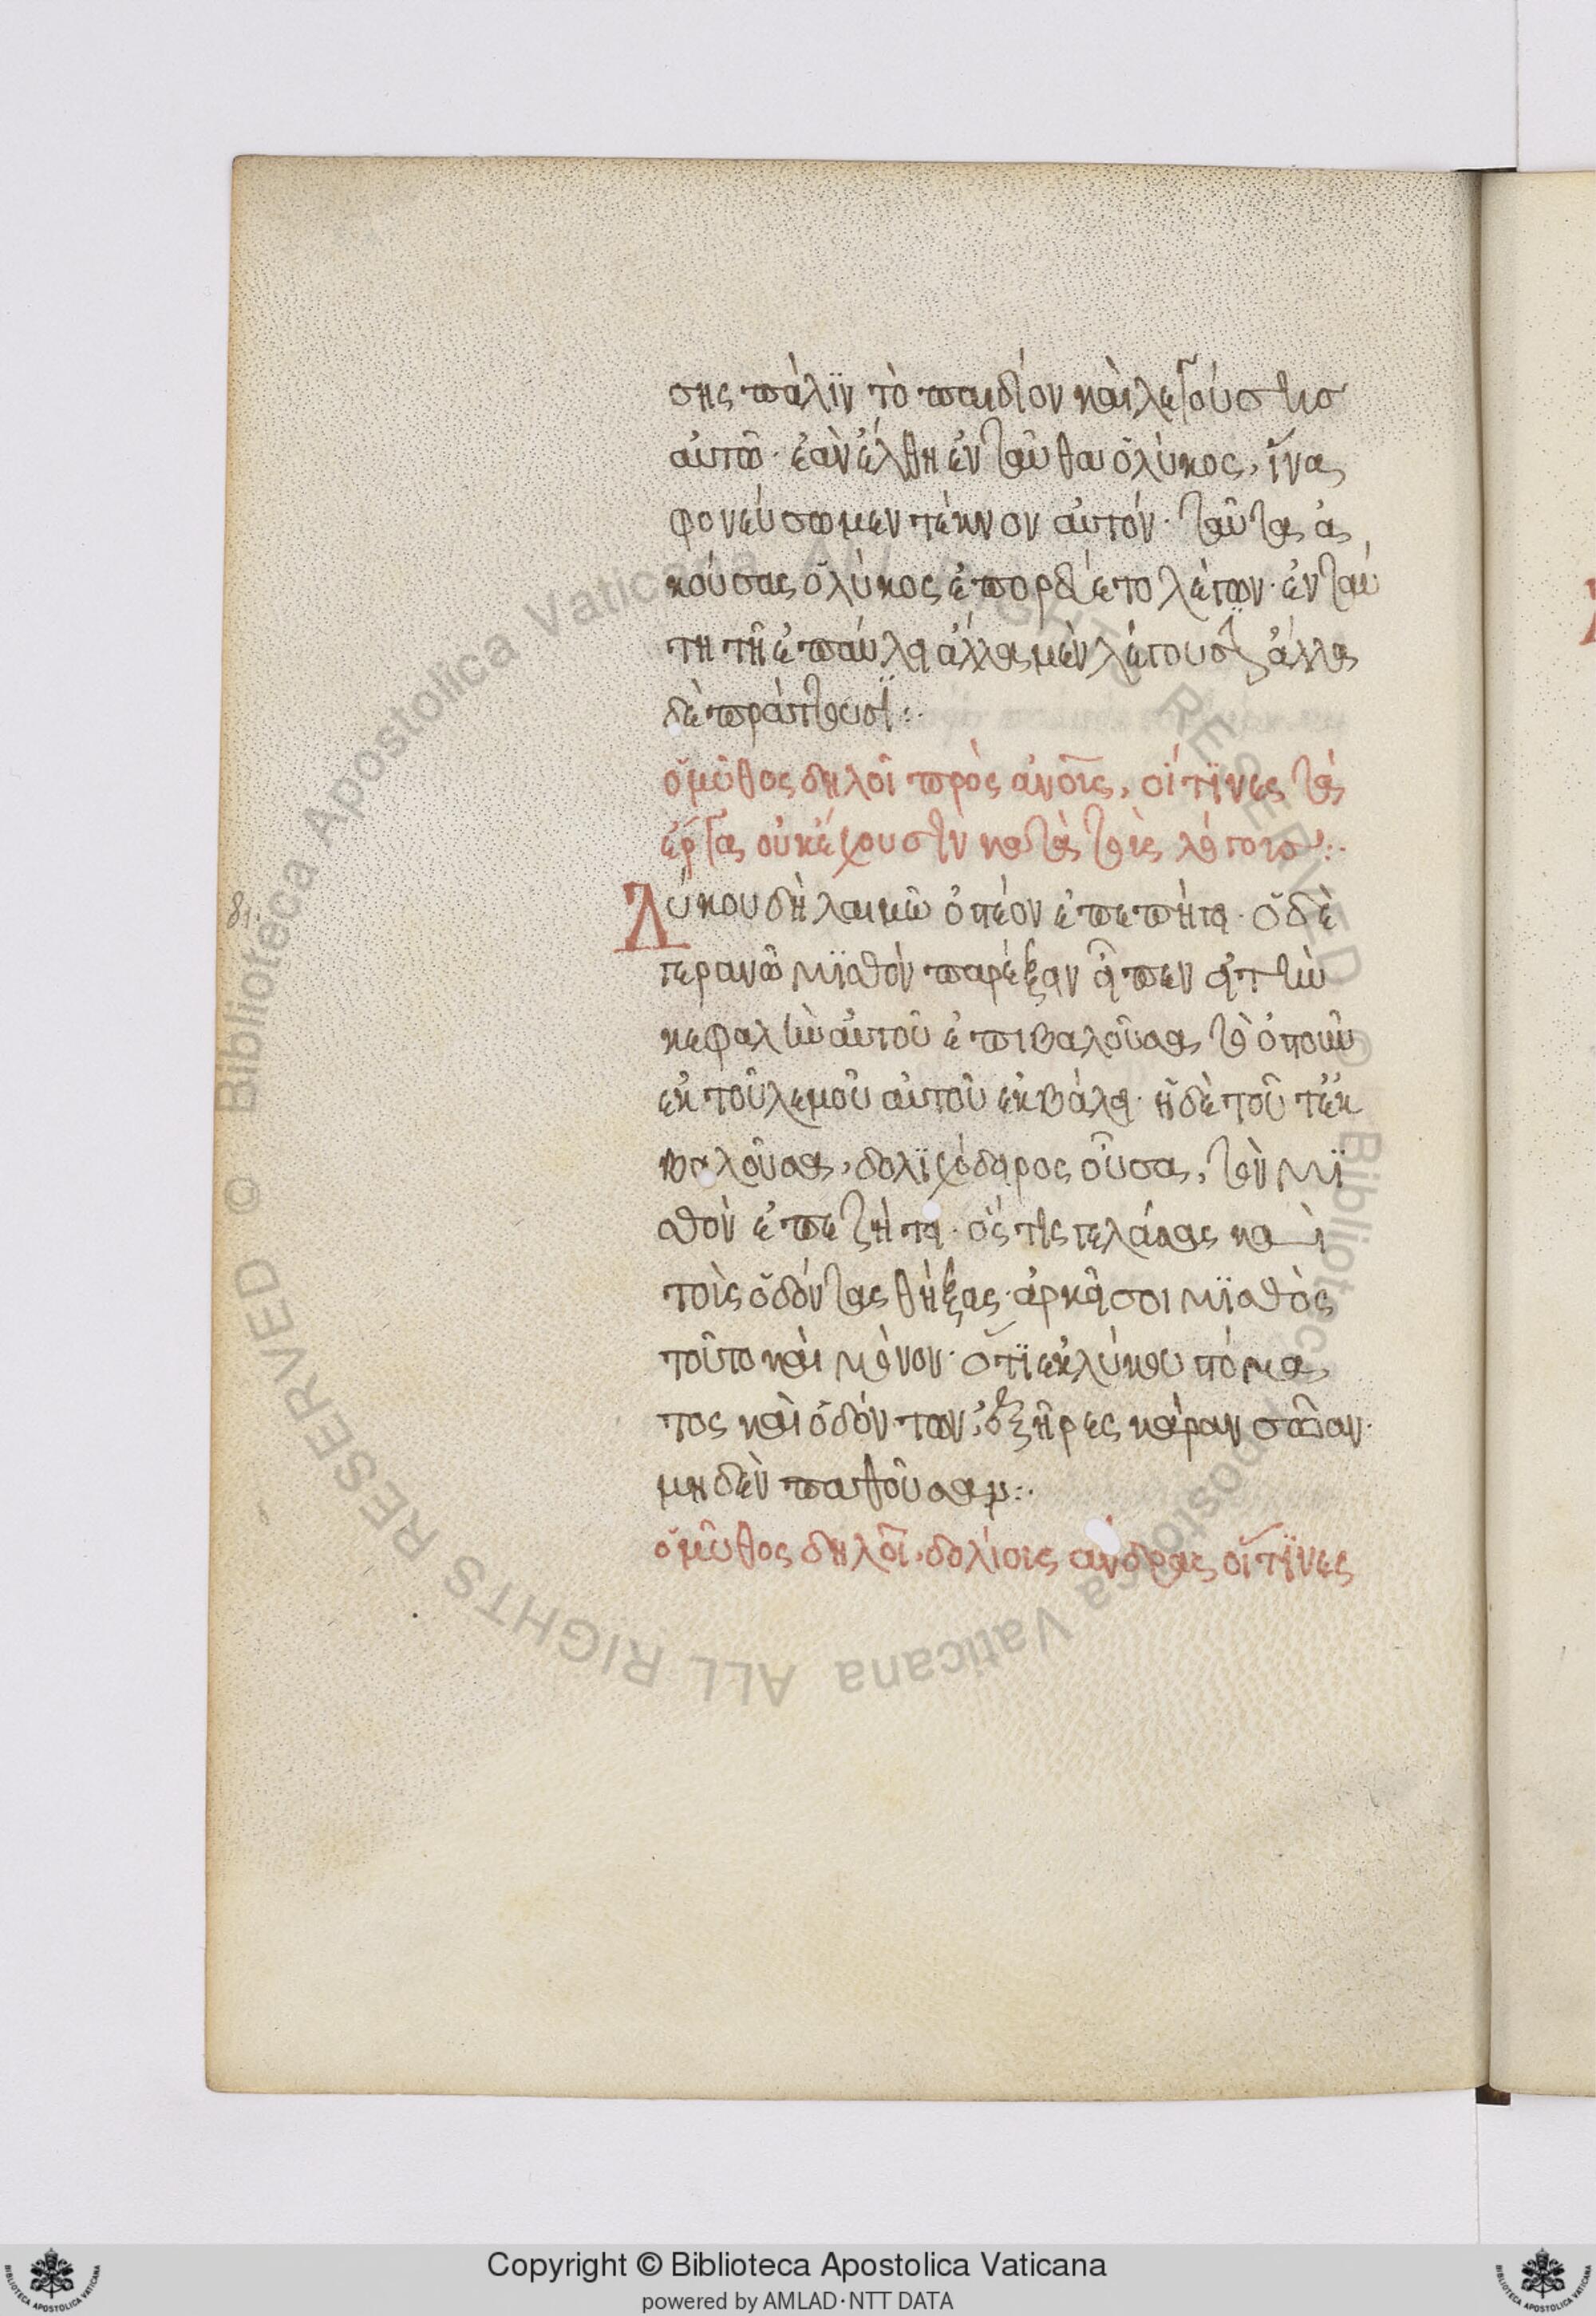 σης πάλϊν τὸ παιδίον καὶ λεγούσης
αὐτῶ· ἐὰν ἔλθη ἐνταῦθα ὁ λύκος, ἵνα
φονεύσωμεν τέκνον αὐτόν· ταῦτα ἀ
κούσας ὁ λύκος ἐπορεύετο λέγων· ἐν ταύ
τη τῆ ἐπαύλει ἄλλα μὲν λέγουσϊ ἄλλα
δὲ πράττουσϊ:·
ὁ μῦθος δηλοῖ πρὸς ἀνοῖς, οἵτϊνες τὰ
ἔργα οὐκ ἔχουσϊν κατὰ τοῖς λόγοις:·
81·
Λύκου δὴ λαιμῶ ὀστέον ἐπεπήγει· ὁ δὲ
γερανῶ μϊσθὸν παρέξειν εἶπεν εἰ τὴν
κεφαλὴν αὐτοῦ ἐπιβαλοῦσα τὸ ὀστοῦν
ἐκ τοῦ λεμοῦ αὐτοῦ ἐκβάλει· ἡ δὲ τοῦτ' ἐκ
βαλοῦσα, δολϊχόδειρος οὖσα, τὸν μϊ
σθὸν ἐπεζήτει· ὅστις γελάσας καὶ
τοὺς ὀδόντας θήξας· ἀρκεῖ σοι μϊσθὸς
τοῦτο καὶ μόνον· ὅτϊ ἐκ λύκου στόμα
τος καὶ ὀδόντων, ἐξῆρες κάραν σώαν·
μηδὲν παθοῦσαν:·
ὁ μῦθος δηλοῖ, δολίοις ἄνδρας οἵτϊνες
Copyright © Biblioteca Apostolica Vaticana
powered by AMLAD·NTT DATA